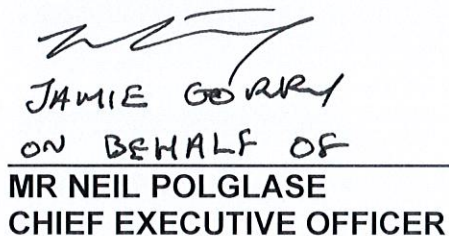 JAMIE GORRY
ON BEHALF OF
MR NEIL POLGLASE
CHIEF EXECUTIVE OFFICER